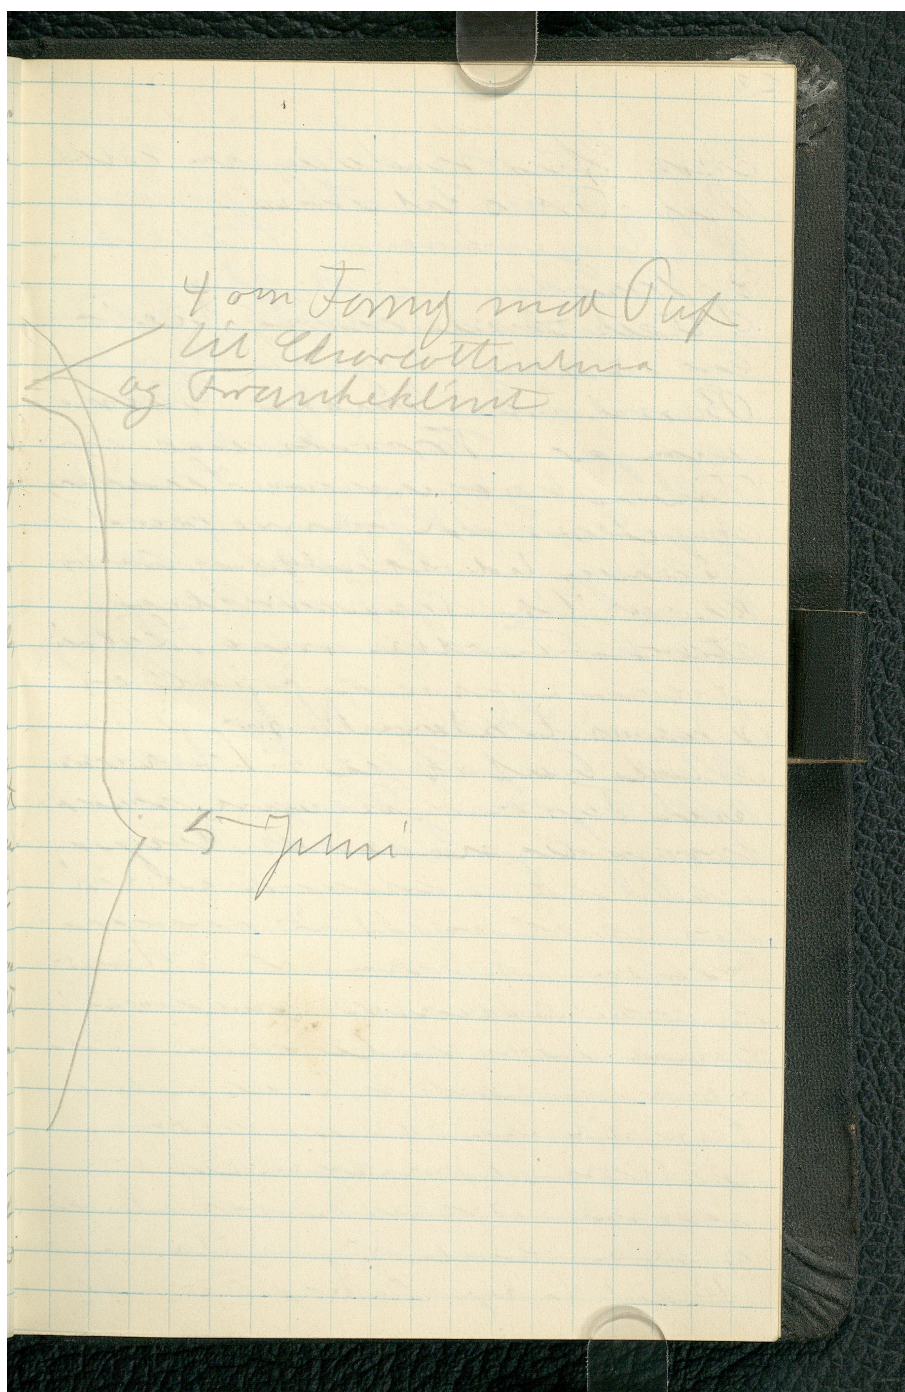 4 om Formg med Puf
til Charlottenlund
og Frankeklint
5 Juni